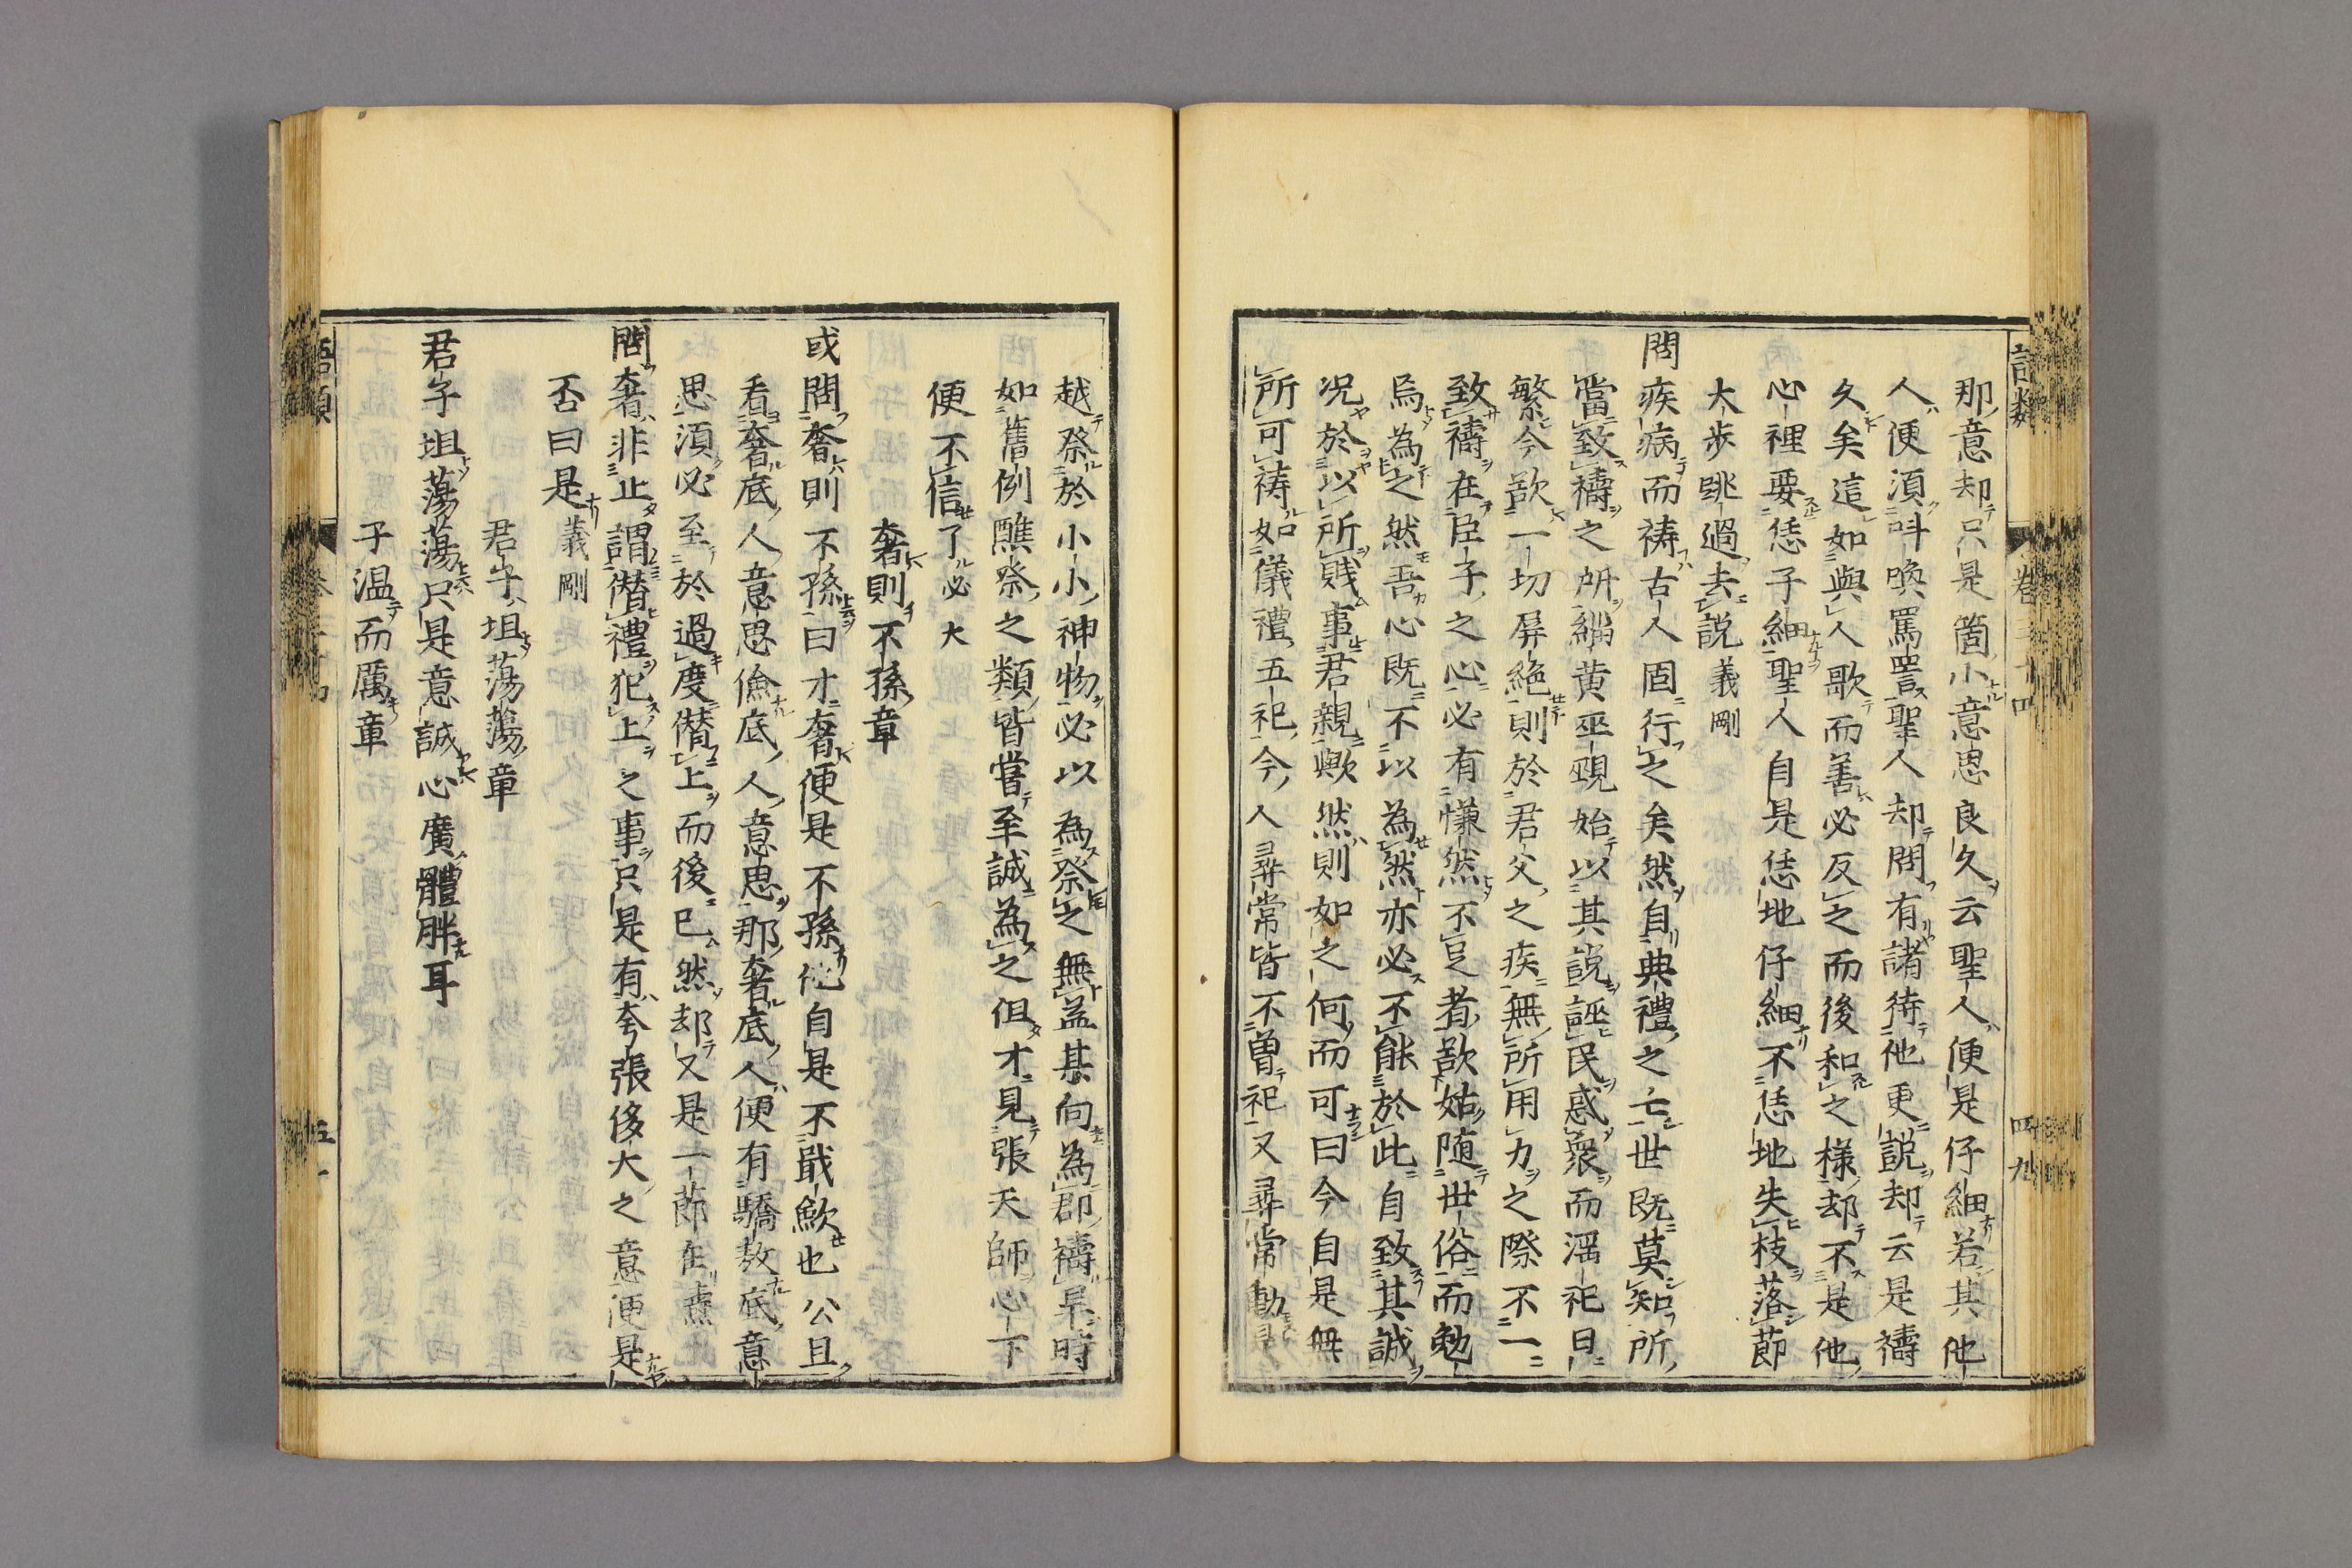 語類 卷三十四 四九
那意却只是箇小意思良久云聖人便是仔細若其他
人便湏呌喚罵詈聖人却問有諸待他更説却云是禱
久矣這如與人歌而善必反之而後和之様却不是他
心裡要恁子細聖人自是恁地仔細不恁地失枝落莭
大歩跳過去説義剛
問疾病而祷古人固行之矣然自典禮之亡世既莫知所
當致禱之所緇黄巫覡始以其説誣民惑衆而滛祀日
繁今欲一切屏絶則於君父之疾無所用力之際不一
致禱在臣子之心必有慊然不足者欲姑随世俗而勉
焉為之然吾心既不以為然亦必不能於此自致其誠
况於以所賎事君親歟然則如之何而可曰今自是無
所可祷如儀禮五祀今人尋常皆不曽祀又尋常動是
越祭於小小神物必以為祭之無益某向為郡禱旱時
如舊例醮祭之類皆嘗至誠為之但才見張天師心下
便不信了必大
奢則不孫章
或問奢則不孫曰才奢便是不孫他自是不戢歛也公且
看奢底人意思儉底人意思那奢底人便有驕敖底意
思湏必至於過度僣上而後已然却又是一莭在燾
問奢非止謂僣禮犯上之事只是有夸張侈大之意便是
否曰是義剛
君子坦蕩蕩章
君子坦蕩蕩只是意誠心廣體胖耳
子温而厲章